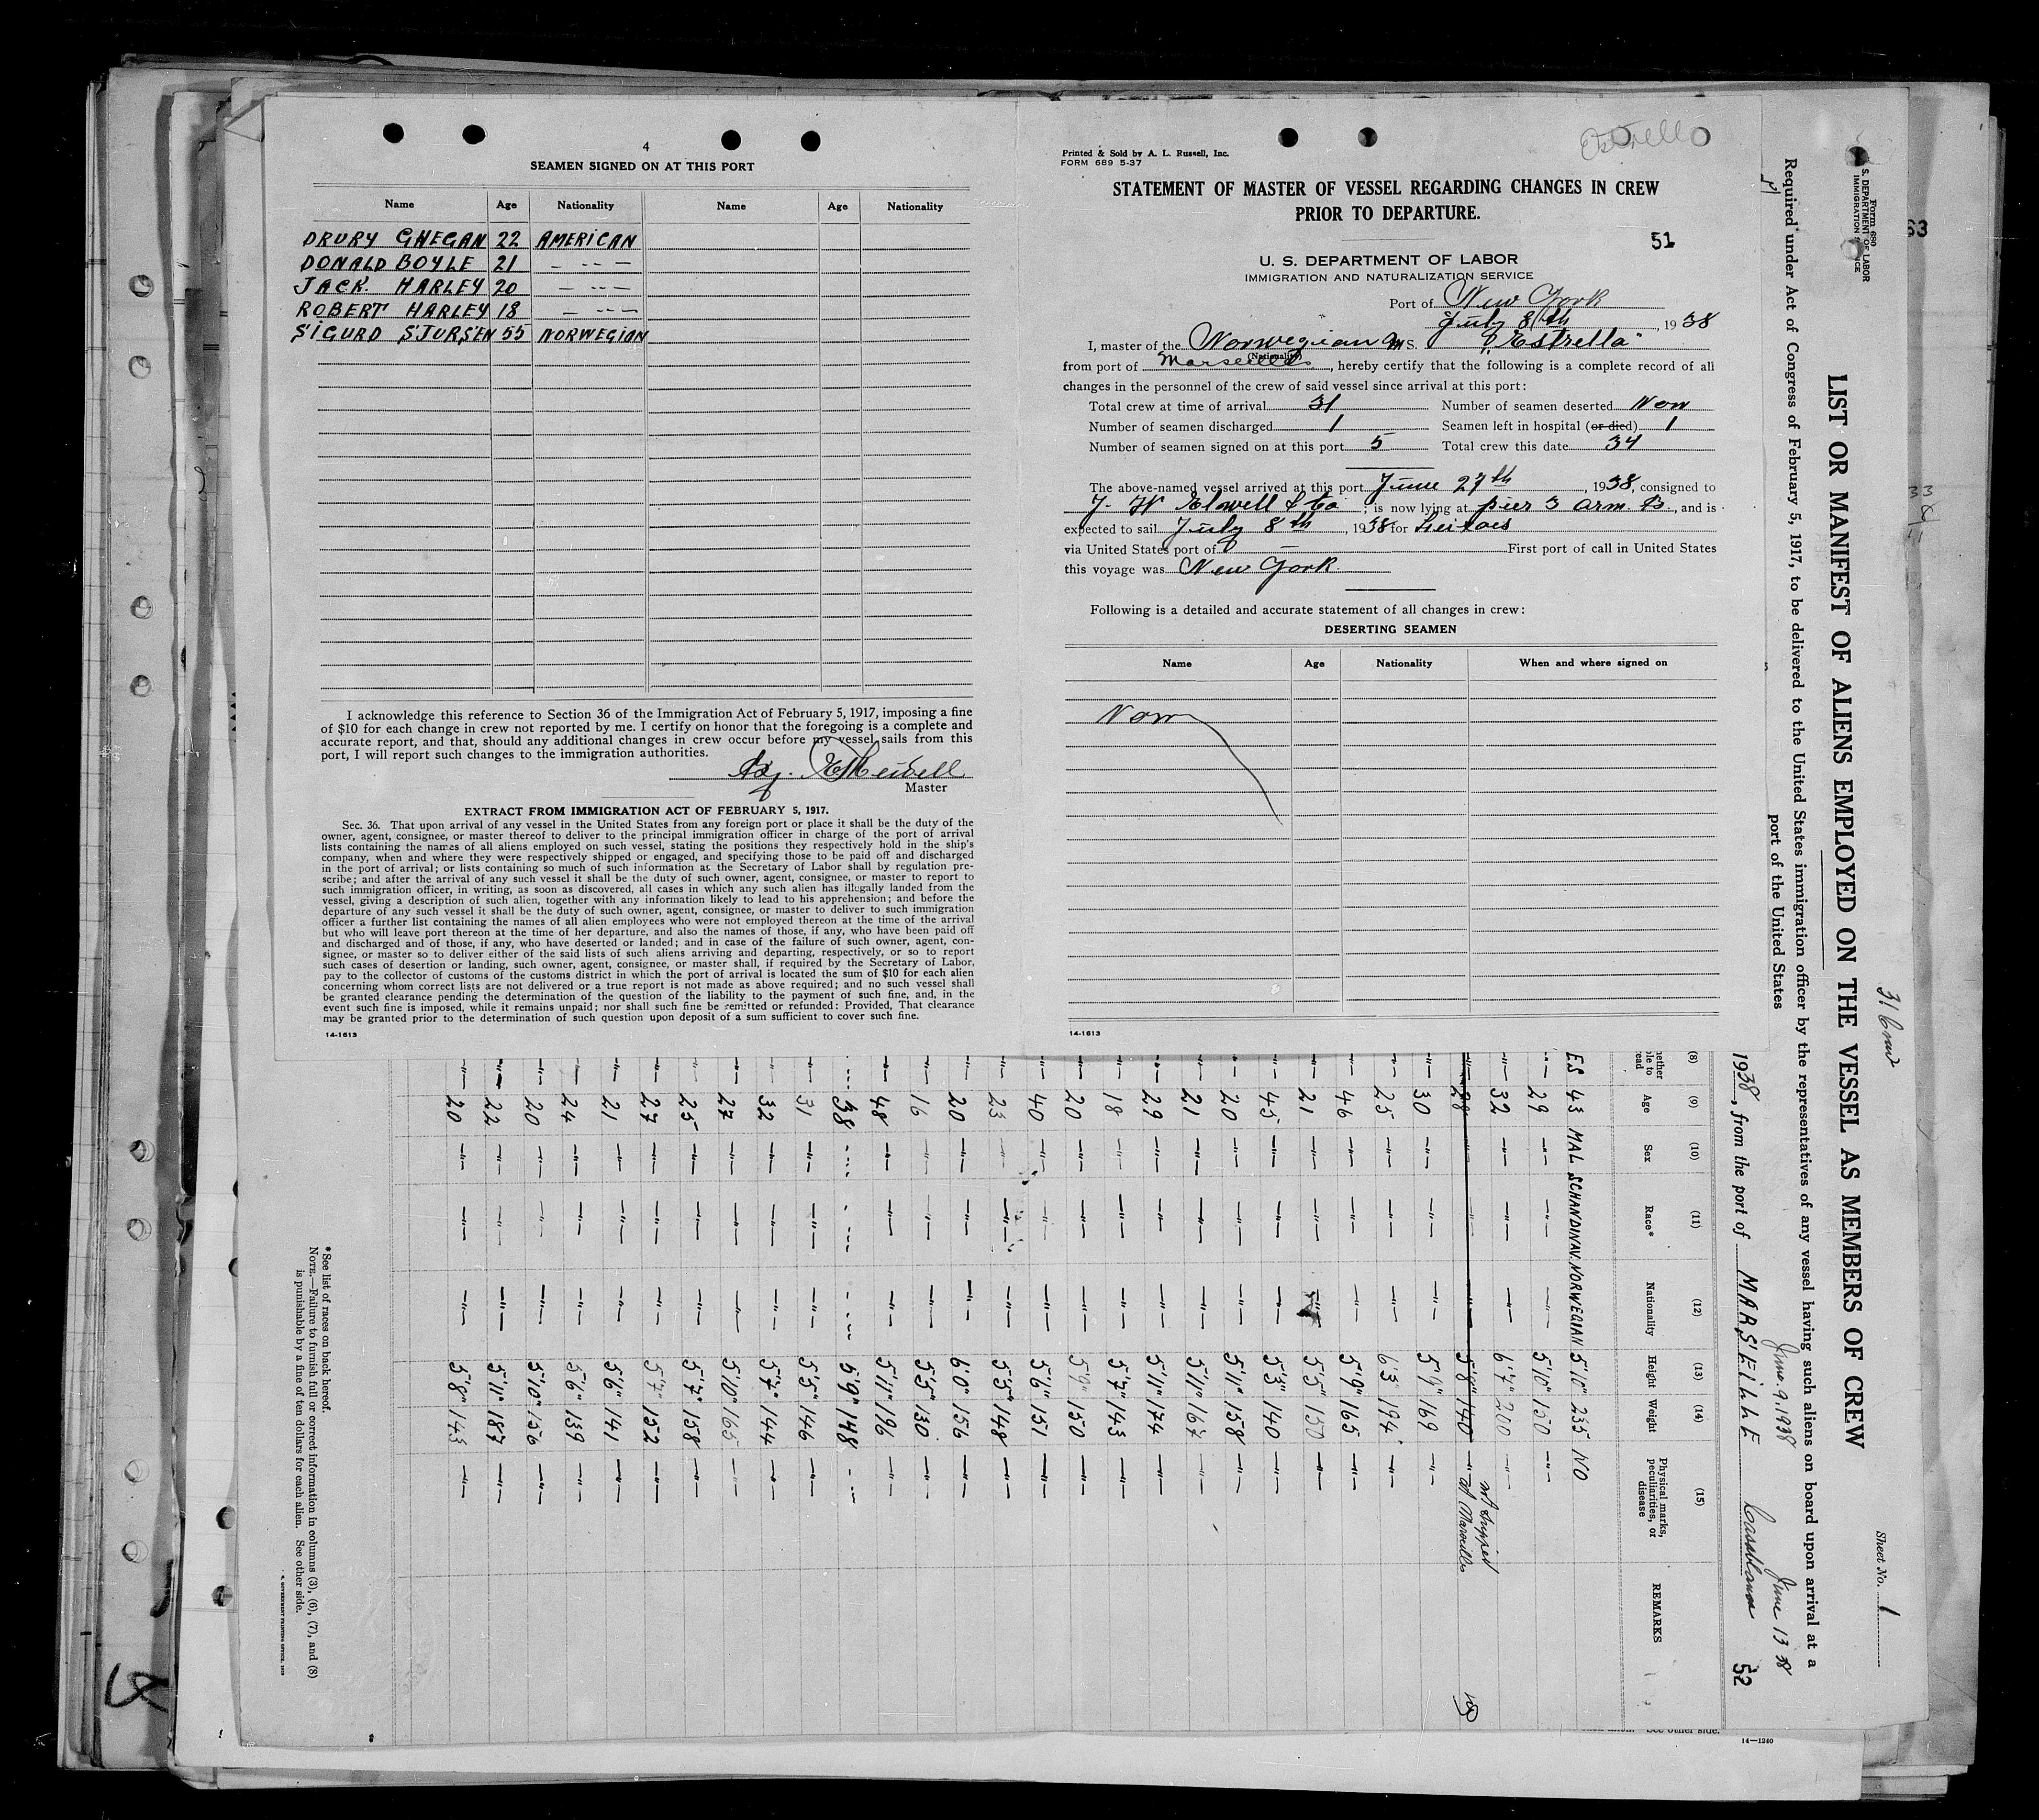 4
SEAMEN SIGNED ON AT THIS PORT
Name Age Nationality Name Age Nationality
DRURY GHEGAN 22 AMERICAN
DONALD BOYLE 21 — -- —
JACK HARLEY 20 — -- —
ROBERT HARLEY 18 — -- —
SIGURD SJURSEN 55 NORWEGIAN
I acknowledge this reference to Section 36 of the Immigration Act of February 5, 1917, imposing a fine
of $10 for each change in crew not reported by me. I certify on honor that the foregoing is a complete and
accurate report, and that, should any additional changes in crew occur before my vessel sails from this
port, I will report such changes to the immigration authorities.
Master
EXTRACT FROM IMMIGRATION ACT OF FEBRUARY 5, 1917.
Sec. 36. That upon arrival of any vessel in the United States from any foreign port or place it shall be the duty of the
owner, agent, consignee, or master thereof to deliver to the principal immigration officer in charge of the port of arrival
lists containing the names of all aliens employed on such vessel, stating the positions they respectively hold in the ship's
company, when and where they were respectively shipped or engaged, and specifying those to be paid off and discharged
in the port of arrival; or lists containing so much of such information as the Secretary of Labor shall by regulation pre-
scribe; and after the arrival of any such vessel it shall be the duty of such owner, agent, consignee, or master to report to
such immigration officer, in writing, as soon as discovered, all cases in which any such alien has illegally landed from the
vessel, giving a description of such alien, together with any information likely to lead to his apprehension; and before the
departure of any such vessel it shall be the duty of such owner, agent, consignee, or master to deliver to such immigration
officer a further list containing the names of all alien employees who were not employed thereon at the time of the arrival
but who will leave port thereon at the time of her departure, and also the names of those, if any, who have been paid off
and discharged and of those, if any, who have deserted or landed; and in case of the failure of such owner, agent, con-
signee, or master so to deliver either of the said lists of such aliens arriving and departing, respectively, or so to report
such cases of desertion or landing, such owner, agent, consignee, or master shall, if required by the Secretary of Labor,
pay to the collector of customs of the customs district in which the port of arrival is located the sum of $10 for each alien
concerning whom correct lists are not delivered or a true report is not made as above required; and no such vessel shall
be granted clearance pending the determination of the question of the liability to the payment of such fine, and, in the
event such fine is imposed, while it remains unpaid; nor shall such fine be remitted or refunded: Provided, That clearance
may be granted prior to the determination of such question upon deposit of a sum sufficient to cover such fine.
14-1613
Estrella
Printed & Sold by A. L. Russell, Inc.
FORM 689 5-37
STATEMENT OF MASTER OF VESSEL REGARDING CHANGES IN CREW
PRIOR TO DEPARTURE.
51
U. S. DEPARTMENT OF LABOR
IMMIGRATION AND NATURALIZATION SERVICE
Port of New York
July 8th, 1938
I, master of the Norwegian M S. "Estrella"
(Nationality)
from port of Marseilles, hereby certify that the following is a complete record of all
changes in the personnel of the crew of said vessel since arrival at this port:
Total crew at time of arrival 31 Number of seamen deserted Non
Number of seamen discharged 1 Seamen left in hospital (or died) 1
Number of seamen signed on at this port 5 Total crew this date 34
The above-named vessel arrived at this port June 27th, 1938, consigned to
J. W. Elwell & Co; is now lying at pier 3 arm. B., and is
expected to sail July 8th, 1938 for Leixoes
via United States port of — First port of call in United States
this voyage was New York
Following is a detailed and accurate statement of all changes in crew:
DESERTING SEAMEN
Name Age Nationality When and where signed on
Non
14-1613
Form 680
S. DEPARTMENT OF LABOR
IMMIGRATION
63
LIST OR MANIFEST OF ALIENS EMPLOYED ON THE VESSEL AS MEMBERS OF CREW
Sheet No. 1
31 Crew
Required under Act of Congress of February 5, 1917, to be delivered to the United States immigration officer by the representatives of any vessel having such aliens on board upon arrival at a
port of the United States
June. 9. 1938 June 13 38
1938, from the port of MARSEILLE Casablanca 52
(8) (9) (10) (11) (12) (13) (14) (15)
Age Sex Race* Nationality Height Weight Physical marks, peculiarities, or disease REMARKS
ES 43 MAL SCHANDINAV. NORWEGIAN 5'10" 235 NO
—"— 29 —"— —"— —"— 5'10" 150 —"—
—"— 32 —"— —"— —"— 6'7" 200 —"—
—"— 28 —"— —"— —"— 5'8" 140 —"— not shipped at Marseilles
—"— 30 —"— —"— —"— 5'9" 169 —"—
—"— 25 —"— —"— —"— 6'3" 194 —"—
—"— 46 —"— —"— —"— 5'9" 165 —"—
—"— 21 —"— —"— —"— 5'5" 150 —"—
—"— 45 —"— —"— —"— 5'3" 140 —"—
—"— 20 —"— —"— —"— 5'11" 158 —"—
—"— 21 —"— —"— —"— 5'11" 167 —"—
—"— 29 —"— —"— —"— 5'11" 174 —"—
—"— 18 —"— —"— —"— 5'7" 143 —"—
—"— 20 —"— —"— —"— 5'9" 150 —"—
—"— 40 —"— —"— —"— 5'6" 151 —"—
—"— 23 —"— —"— —"— 5'5" 148 —"—
—"— 20 —"— —"— —"— 6'0" 156 —"—
—"— 16 —"— —"— —"— 5'5" 130 —"—
—"— 48 —"— —"— —"— 5'11" 196 —"—
—"— 38 —"— —"— —"— 5'9" 148 —"—
—"— 31 —"— —"— —"— 5'5" 146 —"—
—"— 32 —"— —"— —"— 5'7" 144 —"—
—"— 27 —"— —"— —"— 5'10" 165 —"—
—"— 25 —"— —"— —"— 5'7" 158 —"—
—"— 27 —"— —"— —"— 5'7" 152 —"—
—"— 21 —"— —"— —"— 5'6" 141 —"—
—"— 24 —"— —"— —"— 5'6" 139 —"—
—"— 20 —"— —"— —"— 5'10" 156 —"—
—"— 22 —"— —"— —"— 5'11" 187 —"—
—"— 20 —"— —"— —"— 5'8" 143 —"—
*See list of races on back hereof.
NOTE.—Failure to furnish full or correct information in columns (3), (6), (7), and (8)
is punishable by a fine of ten dollars for each alien. See other side.
See other side.
14—1240